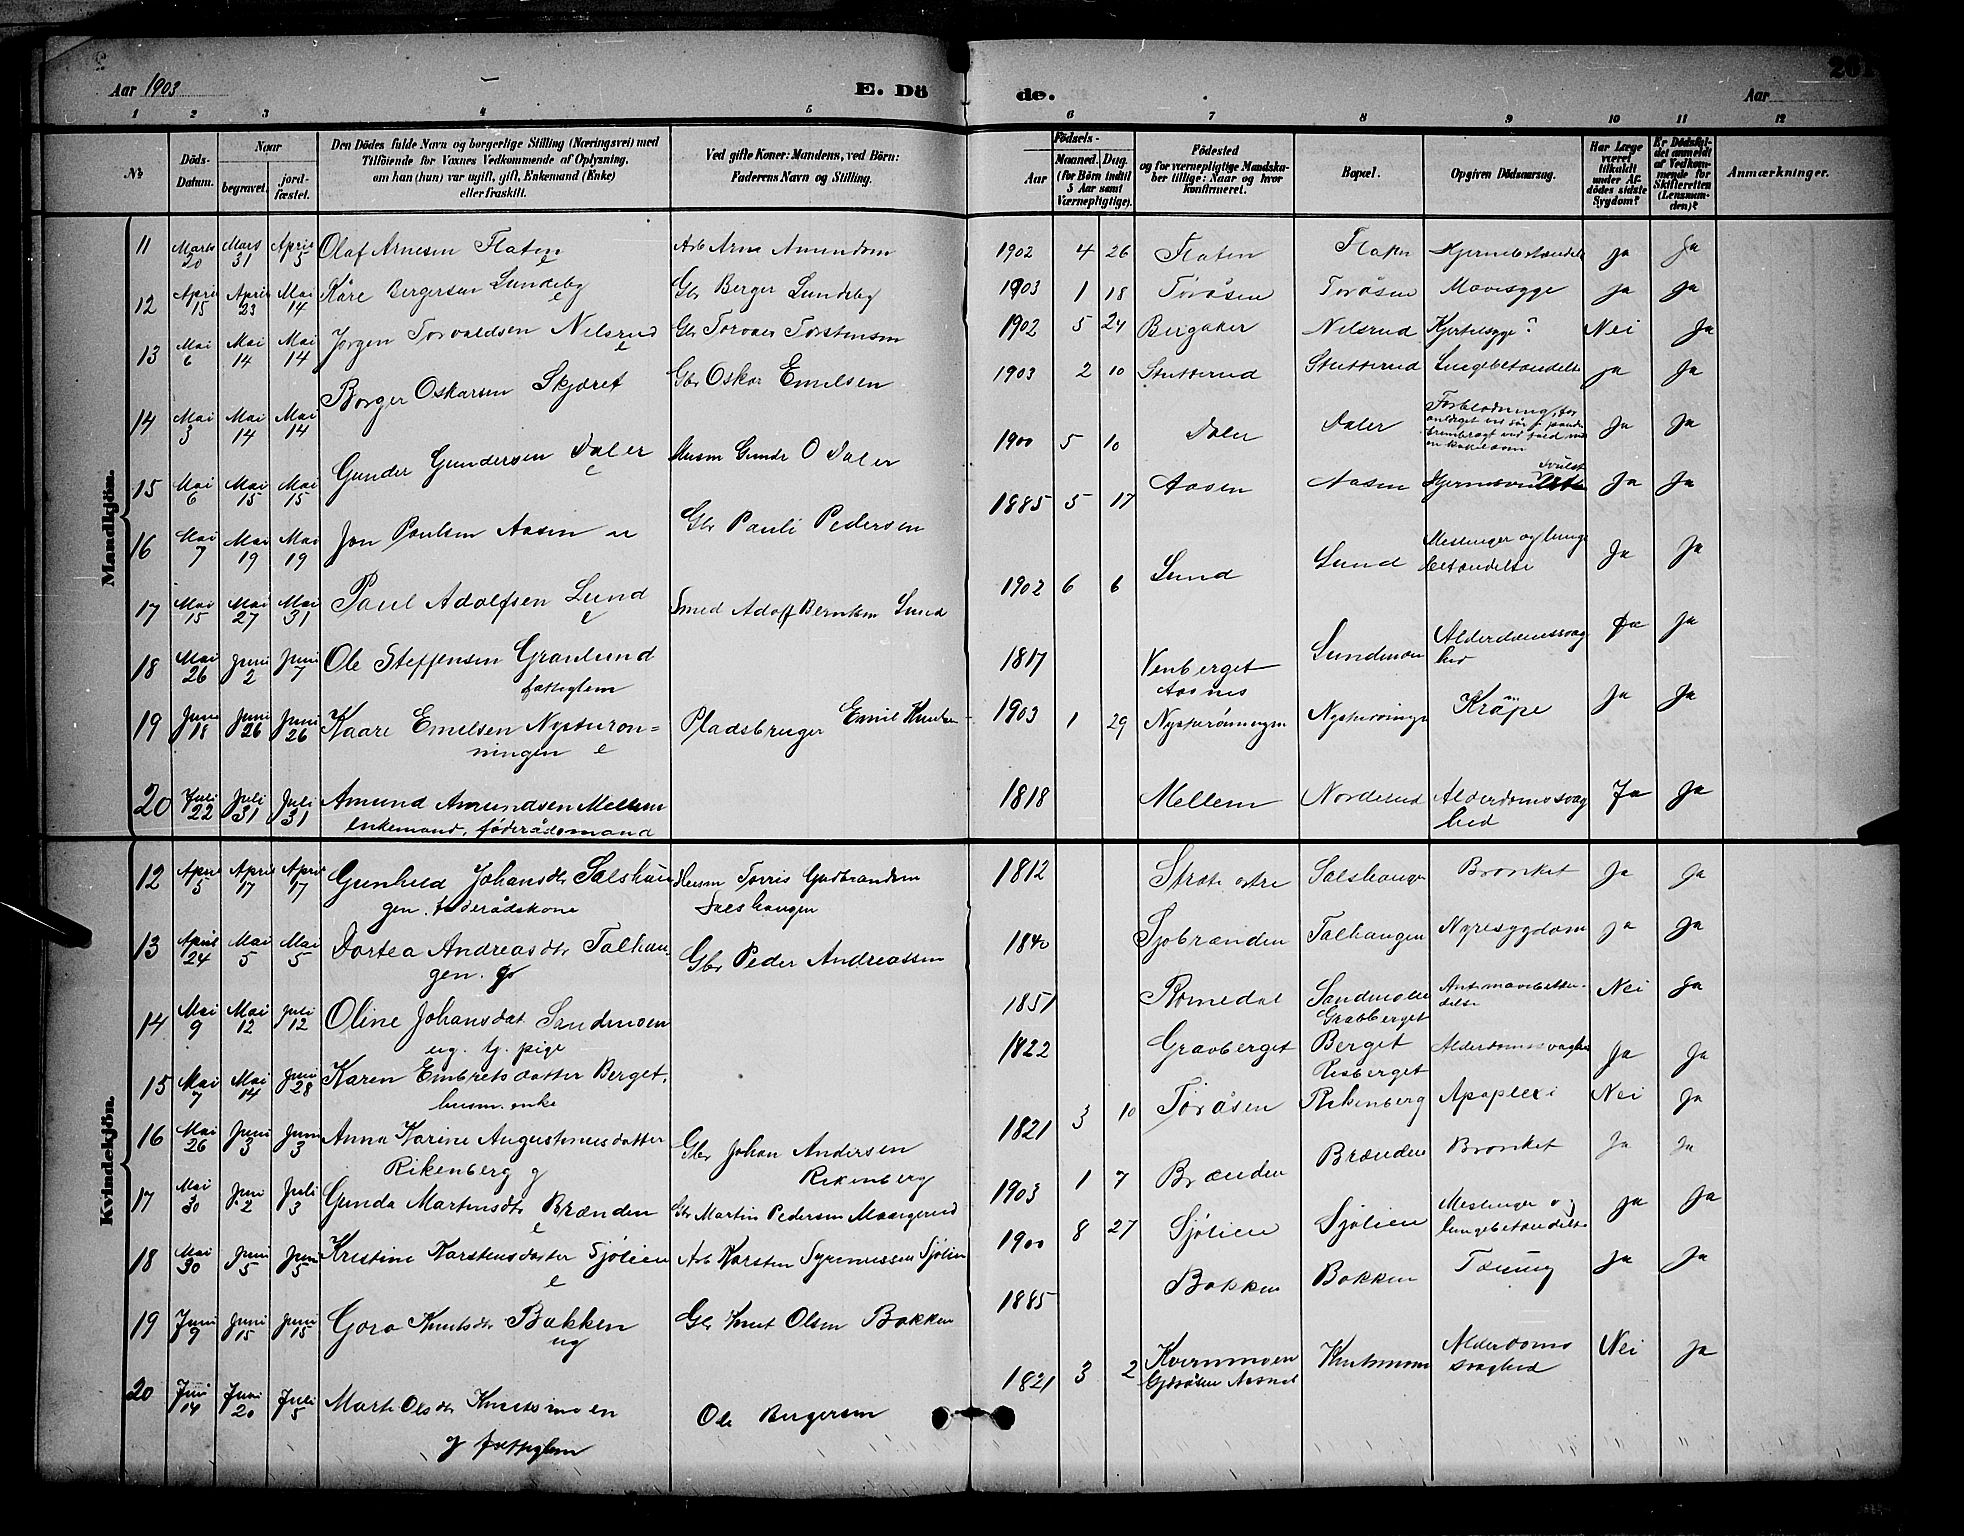 Aar 1903
E. Dö
de.
Aar
261
1 2 3 4 5 6 7 8 9 10 11 12
No
Döds-Datum.
Naar
begravet.
jord-fæstet.
Den Dödes fulde Navn og borgerlige Stilling (Næringsvei) med
Tilföiende for Voxnes Vedkommende af Oplysning,
om han (hun) var ugift, gift, Enkemand (Enke)
eller fraskilt.
Ved gifte Koner: Mandens, ved Börn:
Faderens Navn og Stilling.
Födsels-
Aar
Maaned. Dag.
(for Börn indtil
5 Aar samt
Værnepligtige).
Födested
og for værnepligtige Mandska-
ber tillige: Naar og hvor
konfirmeret.
Bopæl.
Opgiven Dödsaarsag.
Har Læge
været
tilkaldt
under Af-
dödes sidste
Sygdom?
Er Dödsfal-
det anmeldt
af Vedkom-
mende for
Skifteretten
(Lensman-
den)?
Anmærkninger.
Mandkjön.
11 Marts 20 Mars 31 April 5 Olaf Arnesen Flaten e Arb Arne Amundsen 1902 4 26 Flaten Flaten Hjernebetændelse ja ja
12 April 15 April 23 Mai 14 Kåre Bergersen Lundeby e Gbr Berger Lundeby 1903 1 18 Toråsen Toråsen Mavesyge ja ja
13 Mai 6 Mai 14 Mai 14 Jörgen Torvaldsen Nelsrud e Gbr Torval Torstensen 1902 5 24 Bergaker Nelsrud Kjertelsyge? Nei Ja
14 Mai 3 Mai 14 Mai 14 Borger Oskarsen Skjæret Gbr Oskar Emelsen 1903 2 10 Stutterud Stutterud Lungebetændelse ja Ja
15 Mai 6 Mai 15 Mai 15 Gunder Gundersen Daler e Husm Gundr O Daler 1900 5 10 Daler Daler Forblødning, Ja Ja
16 Mai 7 Mai 19 Mai 19 Jon Paulsen Aasen Gbr Pauli Pedersen 1885 5 17 Aasen Aasen Ja Ja
17 Mai 15 Mai 27 Mai 31 Paul Adolfsen Lund e Smed Adolf Berntsen Lund 1902 6 6 Lund Lund Meslinger og lunge
betændelse Ja Ja
18 Mai 26 Juni 2 Juni 7 Ole Steffensen Granlund
fattiglem 1817 Venberget
Aasnes Sundmoen Alderdomssvag
hed Ja Ja
19 Juni 18 Juni 26 Juni 26 Kaare Emelsen Nysturön=
ningen e Pladsbruger Emil Knutsen 1903 1 29 Nysterönningen Kråpe Ja Ja
20 Juli 22 Juli 31 Juli 31 Amund Amundsen Mellem
enkemand, föderådsmand 1818 Mellem Norderud Alderdomssvag
hed Ja Ja
Kvindekjön.
12 April 5 April 17 April 17 Gunhild Johansdtr Salshau
gen. föderådskone Husm Torris Gudbrandsen
Salshaugen 1812 Stræte østre Salshaugen Bronket Ja Ja
13 April 24 Mai 5 Mai 5 Dortea Andreasdtr Talhau-
gen. g Gbr Peder Andreassen 1840 Sjobrænden Talhaugen Nyresygdom ja Ja
14 Mai 9 Mai 12 Juli 12 Oline Johansdat Sandmoen
ug. tj. pige 1851 Romedal Sandmoen
Gravberget Nei Ja
15 Mai 7 Mai 14 Juni 28 Karen Embretsdatter Berget.
husm. enke 1822 Gravberget Berget
Risberget Alderdomssvaghe Ja Ja
16 Mai 26 Juni 3 Juni 3 Anna Karine Augustinusdatter
Rikenberg g Gbr Johan Andersen
Rikenberg 1821 3 10 Toråsen Rikenberg Apoplexi Nei Ja
17 Mai 30 Juni 2 Juli 3 Gunda Martinsdtr Brænden
e Gbr Martin Pedersen Maangerud 1903 1 7 Brænden Brænden Bronket Ja Ja
18 Mai 30 Juni 5 Juni 5 Kristine Karstensdatter Sjölien
e Arb Karsten Syrinussen Sjölien 1900 8 27 Sjölien Sjölien Meslinger og
lungebetændelse Ja Ja
19 Juni 9 Juni 15 Juni 15 Goro Knutsdtr Bakken
ug Gbr Knut Olsen Bakken 1885 Bakken Bakken Tæring Ja Ja
20 Juni 14 Juni 20 Juli 5 Marte Olsdtr Knutsmoen
g fattiglem Ole Bergersen 1821 3 2 Kvernmoen
Gjæråsen Aasnes Knutsmoen Alderdoms
svaghed Nei Ja